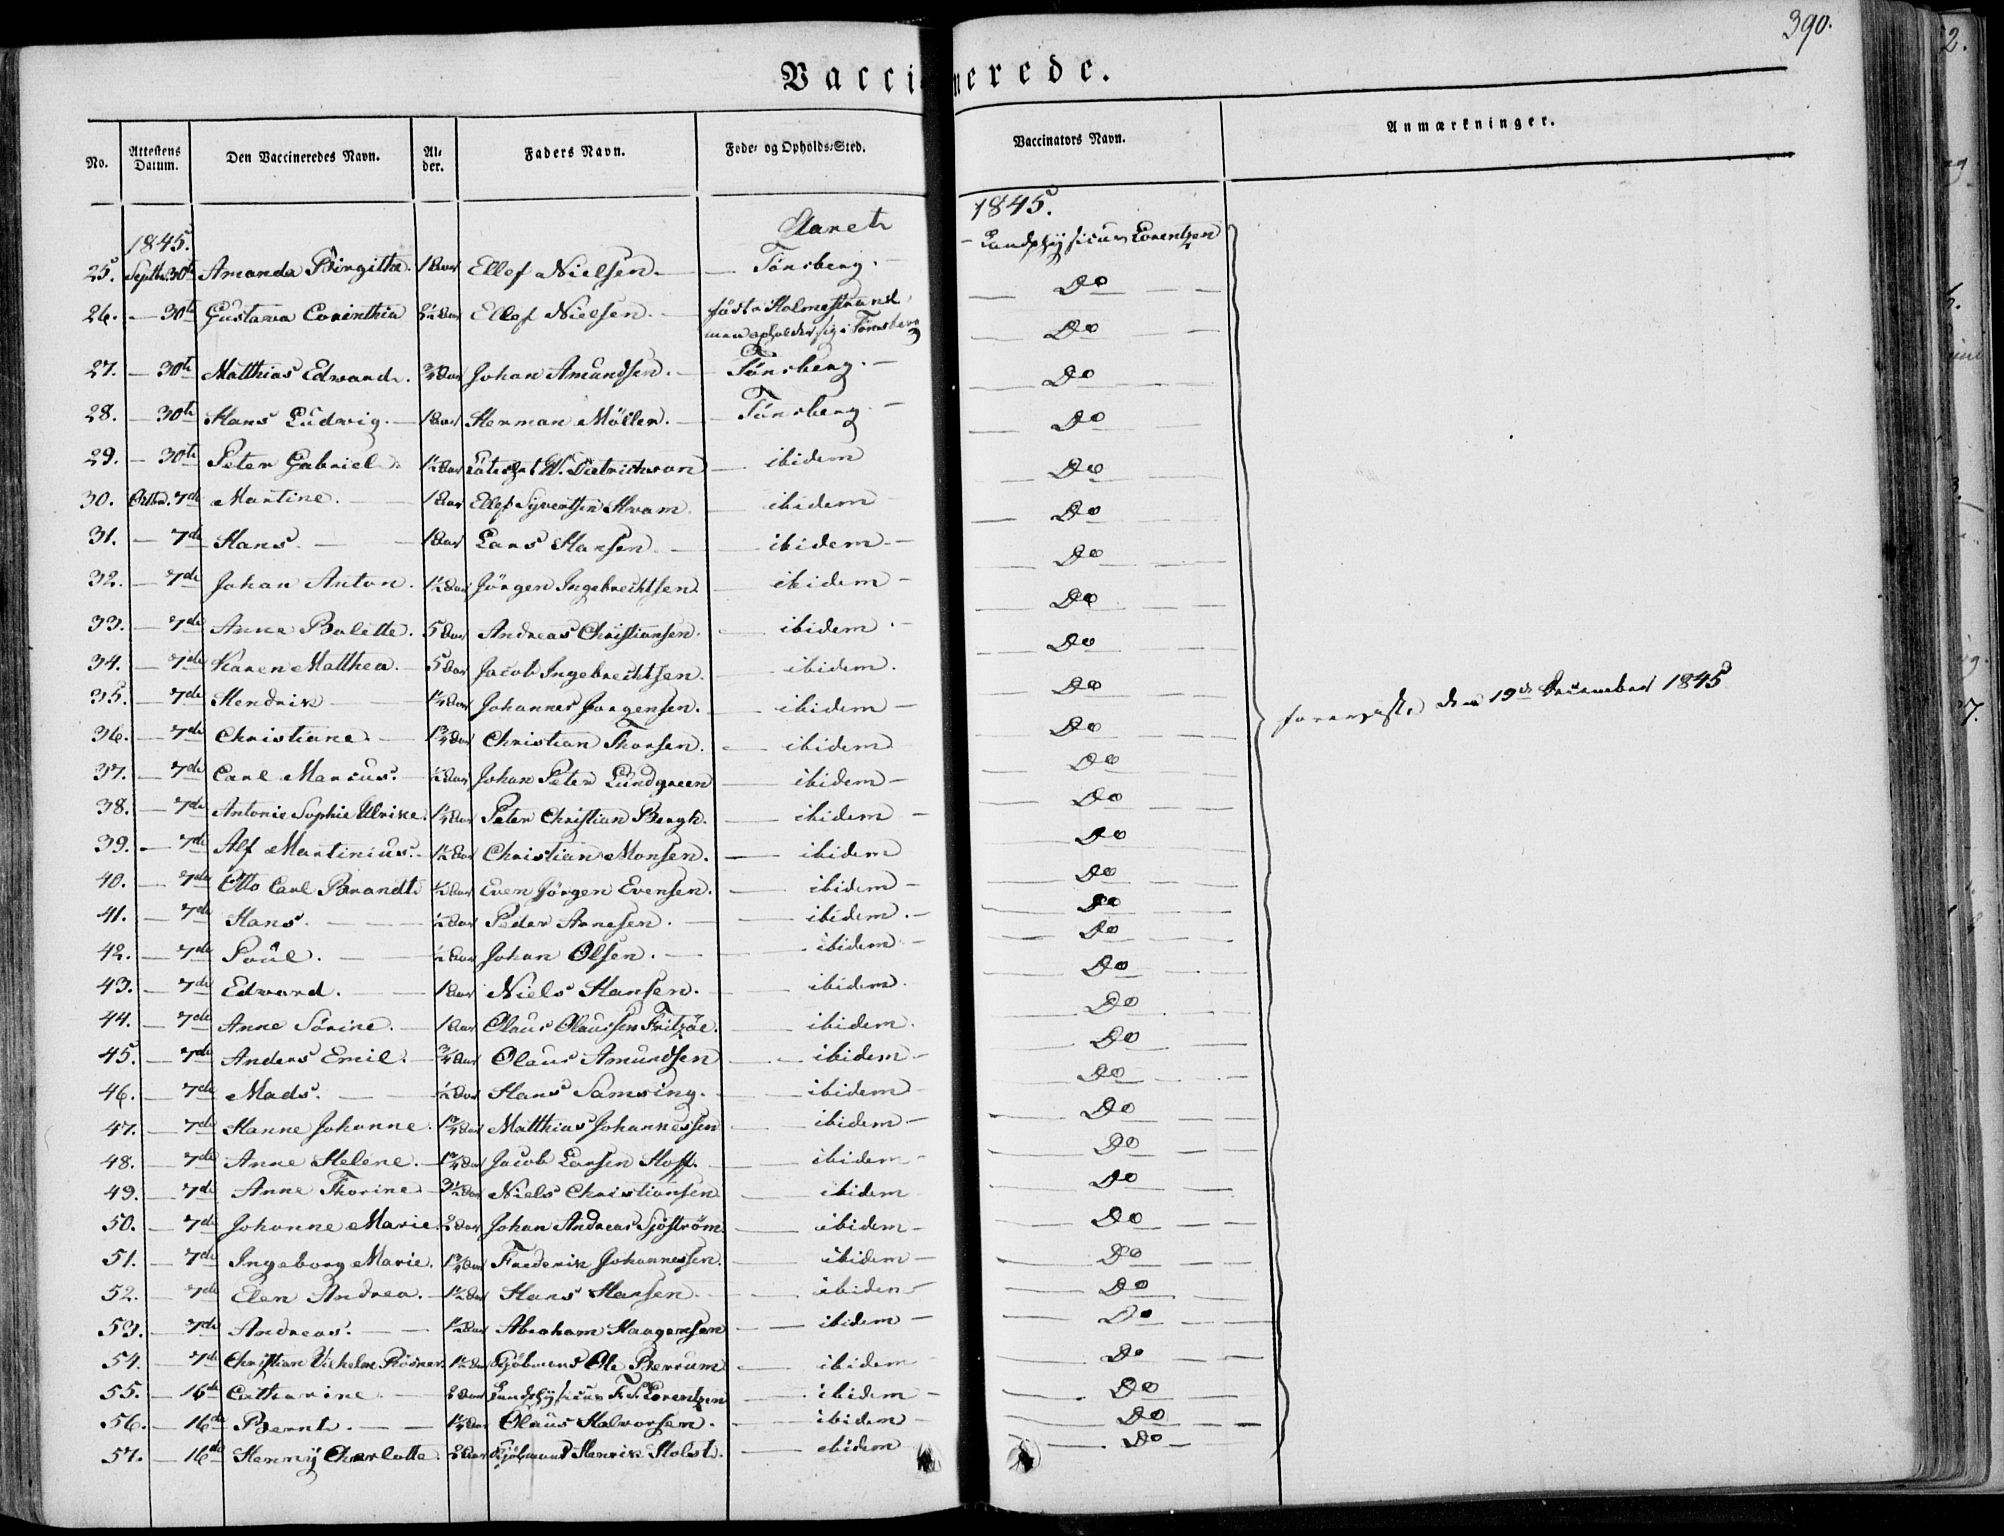 390.
Vaccinerede.
No. Attestens Datum. Den Vaccineredes Navn. Al-der. Faders Navn. Føde- og Opholds-Sted. Vaccinators Navn. Anmærkninger.
Aaret 1845.
1845.
25. Septbr. 30te Amanda Birgitha. 1 Aar Ellef Nielsen. Tönsberg. Landphysicus Lorentzen
26. 30te Gustava Corinthia Ellef Nielsen. född i Holmestrand Do
men opholder sig i Tönsberg
27. 30te Matthias Edvard. 3/4 Aar Johan Amundsen. Tönsberg. Do
28. 30te Hans Ludvig. 1 Aar Herman Möller. Tönsberg. Do
29. 30te Peter Gabriel. 1 1/2 Aar W. Dietrichson ibidem Do
30. Octbr. 7de Martine. 1 Aar Ellef Syvertsen Hvam. ibidem Do
31. 7de Hans. 1 Aar Lars Hansen. ibidem Do
32. 7de Johan Anton. 1 1/2 Aar Jörgen Ingebrechtsen. ibidem Do
33. 7de Anne Bolette. 5 Aar Andreas Christiansen. ibidem Do
34. 7de Karen Matthea. 5 Aar Jacob Ingebrechtsen. ibidem. Do
35. 7de Hendrik 1 1/4 Aar Johannes Jörgensen. ibidem Do
foranviste den 19de December 1845
36. 7de Christiane. 1 3/4 Aar Christian Thorsen. ibidem Do
37. 7de Carl Marcus. 1/2 Aar Johan Peter Lundgreen ibidem Do
38. 7de Antonie Sophie Ulrike. 1 1/4 Aar Peter Christian Bergh. ibidem Do
39. 7de Alf Martinius. 1 1/2 Aar Christian Monsen. ibidem Do
40. 7de Otto Carl Brandt. 1/2 Aar Even Jörgen Evensen. ibidem Do
41. 7de Hans. 1/2 Aar Peder Arnesen. ibidem. Do
42. 7de Poül. 1/2 Aar Johan Olsen. ibidem Do
43. 7de Edvard. 1 Aar Niels Hansen. ibidem. Do
44. 7de Anne Sörine. 1 Aar Olaus Olaussen Fritzöe. ibidem. Do
45. 7de Anders Emil. 3/4 Aar Olaus Amundsen ibidem Do
46. 7de Mads. 1/2 Aar Hans Samsing. ibidem Do
47. 7de Hanne Johanne. 1 3/4 Aar Matthias Johannessen ibidem Do
48. 7de Anne Helene. 1 3/4 Aar Jacob Larsen Hoff. ibidem Do
49. 7de Anne Thorine 3 1/2 Aar Niels Christiansen ibidem Do
50. 7de Johanne Marie. 2 Aar Johan Andreas Sjöström ibidem Do
51. 7de Ingeborg Marie. 1 3/4 Aar Frederik Johannessen. ibidem Do
52. 7de Elen Andrea. 1 1/2 Aar Hans Hansen. ibidem Do
53. 7de Andreas. 1 1/2 Aar Abraham Haagensen ibidem Do
54. 7de Christian Vilhelm 1 1/2 Aar Kjöbmand Ole Berrum ibidem Do
55. 16de Catharine 2 Aar Landphysicus F. Lorentzen ibidem Do
56. 16de Bernt. 1 1/4 Aar Olaüs Halvorsen. ibidem Do
57. 16de Henny Charlotte. 2 Aar Kjöbmand Henrik Holst. ibidem Do